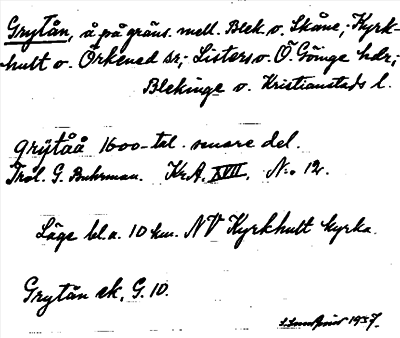 Grytån, å på gräns. mell. Blek. o. Skåne; Kyrk-
hult o. Örkened sr; Listers o. Ö. Göinge hdr;
Blekinge o. Kristianstads l.
grÿtåå 1600-tal. senare del.
Trol. G. Buhrman. KrA, XVII, N:o 12.
Läge bl.a. 10 km. NV Kyrkhult kyrka.
Grytån ek. G. 10.
1937.